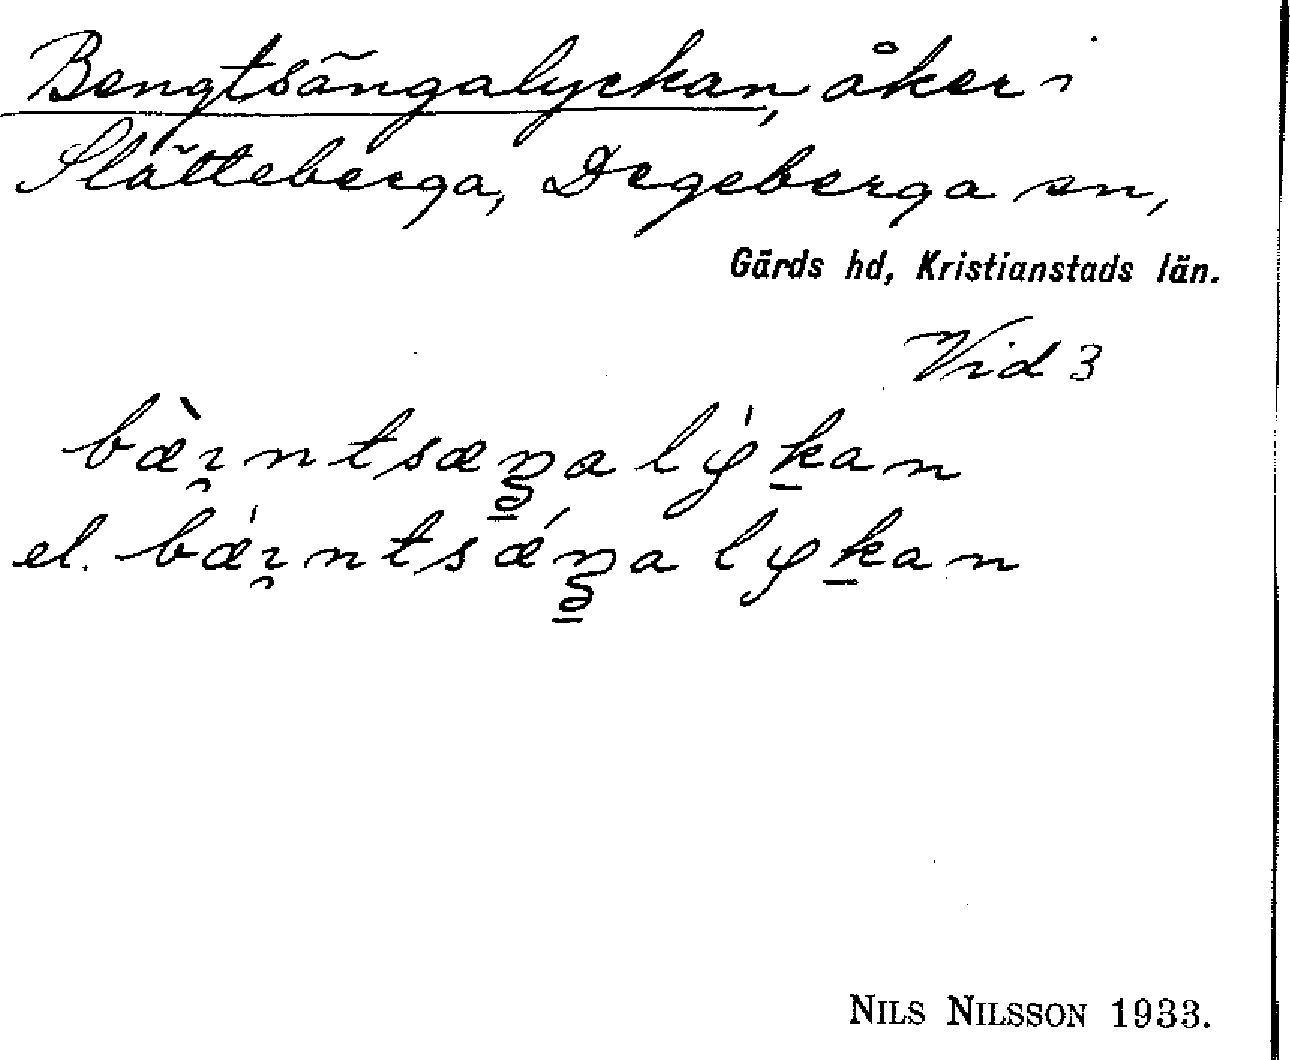 Bengtsängalyckan, åker i
Slätteberga, Degeberga sn,
Gärds hd, Kristianstads län.
Vid 3
bæ̀ɪ̯ntsæŋalýkan
el. bæ̀ɪ̯ntsǽŋalykan
NILS NILSSON 1933.